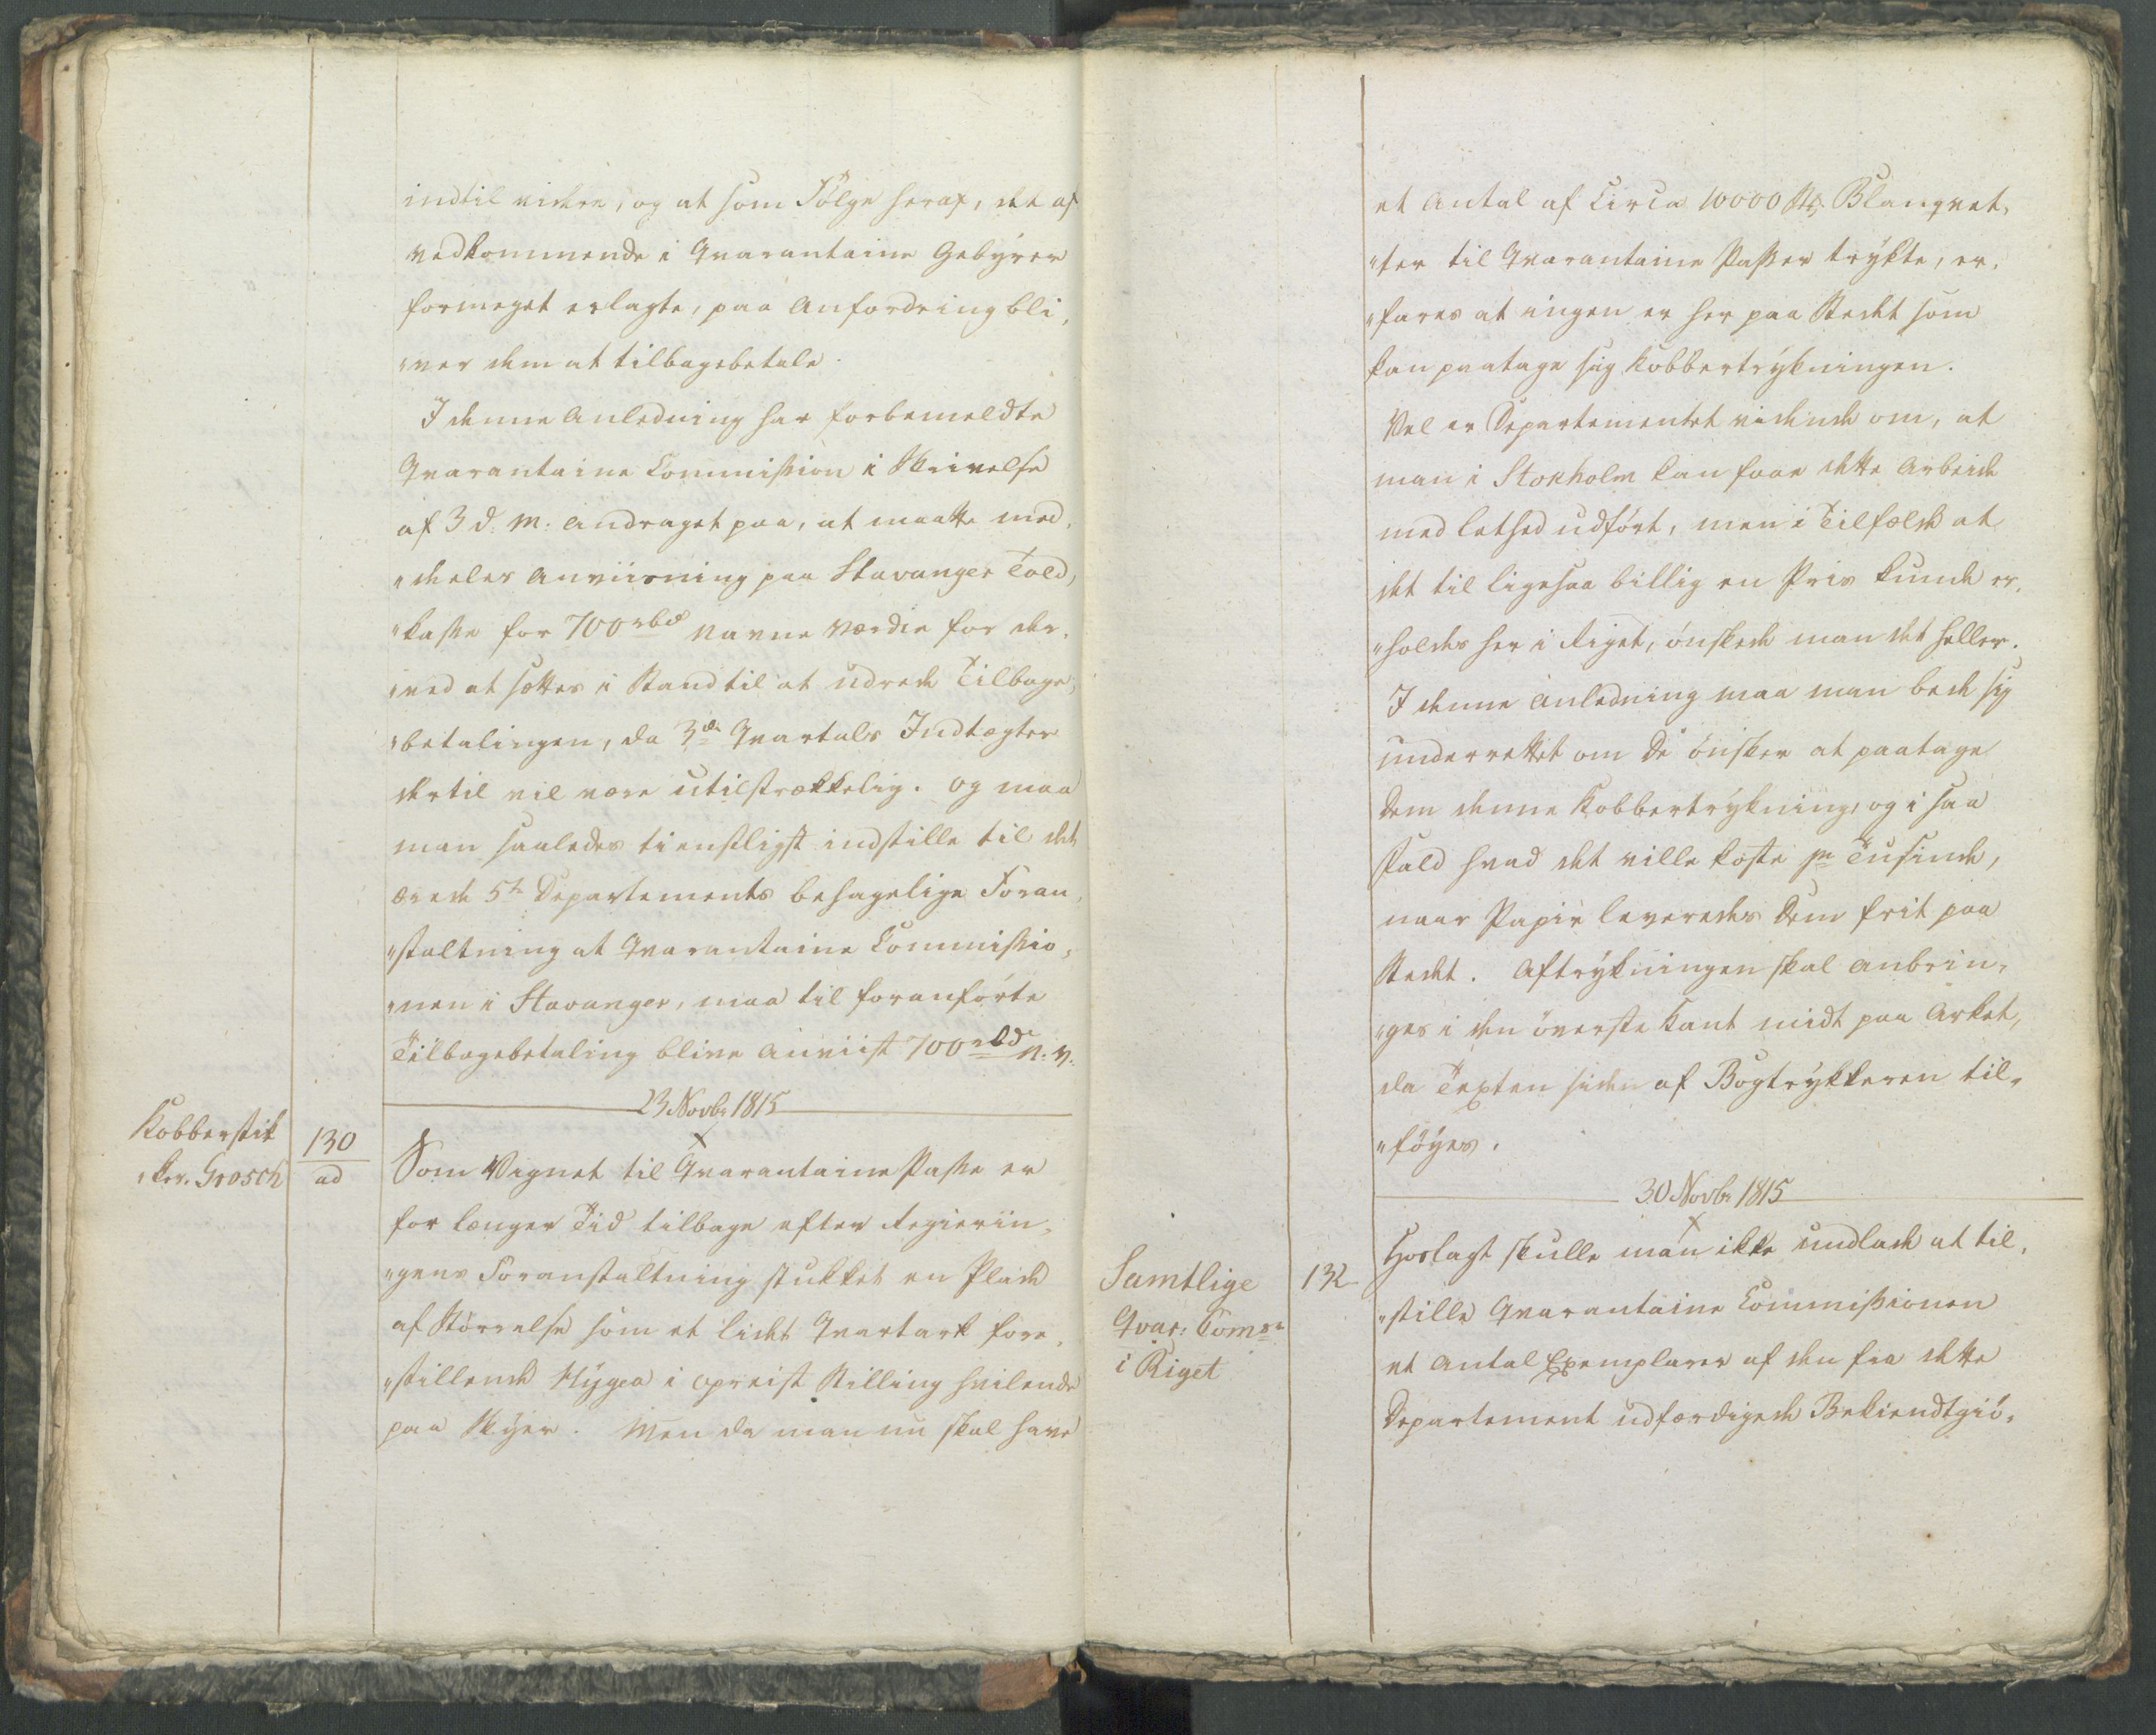 indtil videre, og at som Fölge heraf, det af
vedkommende i Qvarantaine Gebÿrer
formeget erlagte, paa Anfordring bli,
"ver dem at tilbagebetale.
I denne Anledning har forbemeldte
Qvarantaine Commission i Skrivelse
af 3 d. M. andraget paa, at maatte med,
"deeles Anviisning paa Stavanger Told,
"kasse for 700 rbd Navne Værdie for der,
"ved at sættes i Stand til at udrede Tilbage,
"betalingen, da 3de Qvartals Indtægter
dertil vil være utilstrækkelig. og maa
man saaledes tienstligst indstille til det
ærede 5te Departements behagelige Foran,
"staltning at Qvarantaine Commissio,
"nen i Stavanger, maa til foranförte
Tilbagebetaling blive anviist 700 rbd N. V.
23 Novbr 1815
Kobberstik
"ker. Grosch
130
ad
Som Vignet til Qvarantaine Passe er
for længer Tid tilbage efter Regierin,
"gens Foranstaltning stukket en Plade
af Störrelse som et lidet Qvartark fore,
"stillende Hÿgea i opreist Stilling hvilende
paa Skÿer. Men da man nu skal have
et Antal af Circa 10000 Stk. Blanqvet,
"ter til Qvarantaine Passer trÿkte, er,
"fares at ingen er her paa Stedet som
kan paatage sig Kobbertrÿkningen.
Vel er Departementet vidende om, at
man i Stokholm kan faae dette Arbeide
med lethed udfört, men i Tilfælde at
det til ligesaa billig en Priis kunde er,
"holdes her i Riget, önskede man det heller.
I denne Anledning maa man bede sig
underrettet om De önsker at paatage
Dem denne Kobbertrÿkning, og i saa
Fald hvad det ville koste pr Tusinde,
naar Papir leveredes Dem frit paa
Stedet. Aftrÿkningen skal anbrin,
"ges i den överste Kant midt paa Arket,
da Texten siden af Bogtrÿkkeren til,
"föÿes.
30 Novbr 1815
Samtlige
Qvar: Comsr
i Riget
132
Hoslagt skulle man ikke undlade at til,
"stille Qvarantaine Commissionen
et Antal Exemplarer af den fra dette
Departement udfærdigede Bekiendtgiö,